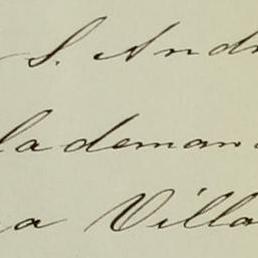 S. Andr
la deman
a Villa